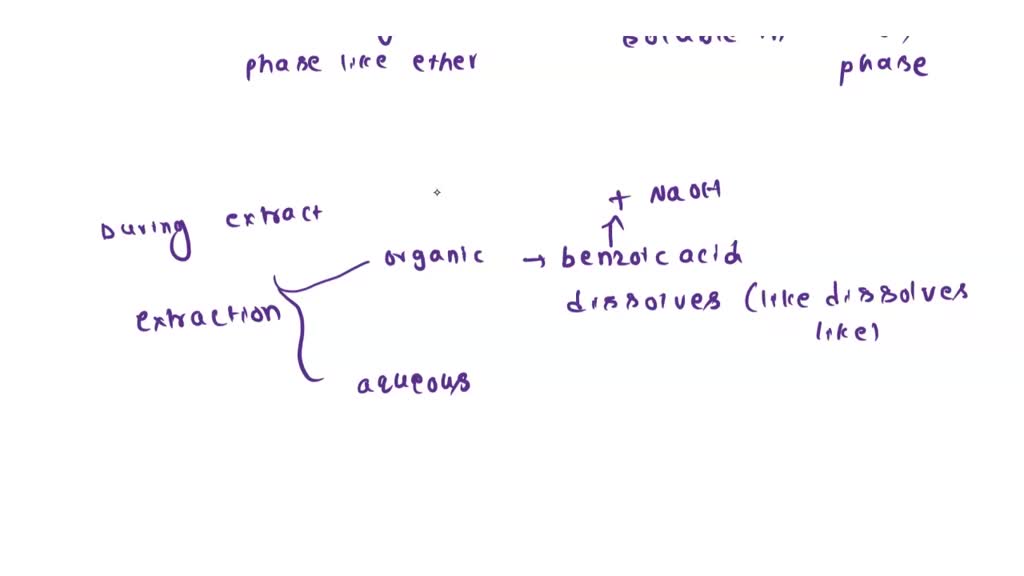 phase like ether
phase
+ NaOH
During extract
organic → benzoic acid
dissolves (like dissolves
like)
extraction
aqueous